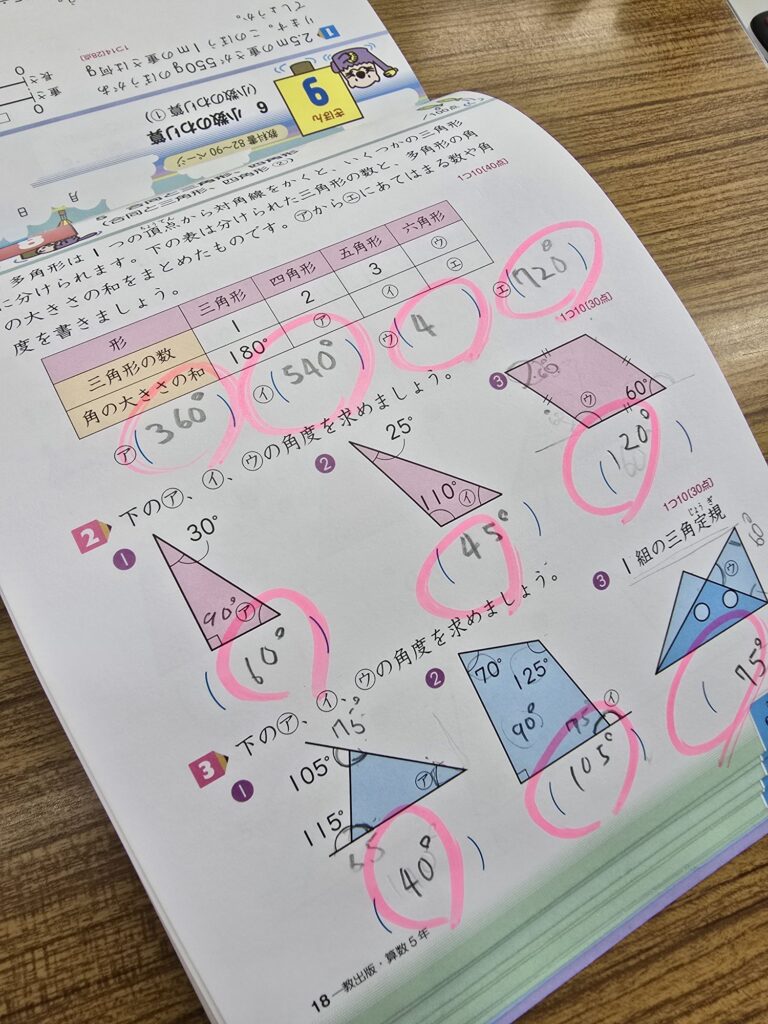 1 2.5mの重さが550gのぼうがあ
ります。このぼう1mの重さは何g
でしょうか。
1つ14〔28点〕
重さ 0
長さ 0
きほん
9
6 小数のわり算
(小数のわり算①)
教科書 82〜90ページ
月 日
/100点
(合同と三角形、四角形②)
1つ10〔40点〕
多角形は1つの頂点から対角線をかくと、いくつかの三角形
に分けられます。下の表は分けられた三角形の数と、多角形の角
の大きさの和をまとめたものです。㋐から㋓にあてはまる数や角
度を書きましょう。
形 三角形 四角形 五角形 六角形
三角形の数 1 2 3 ㋒
角の大きさの和 180° ㋐ ㋑ ㋓
㋐(360°) ㋑(540°) ㋒(4) ㋓(720°)
1つ10〔30点〕
2 下の㋐、㋑、㋒の角度を求めましょう。
❶ 30° 90° ㋐
(60°)
❷ 25° 110° ㋑
(45°)
❸ 60° ㋒
(120°)
1つ10〔30点〕
3 下の㋐、㋑、㋒の角度を求めましょう。
❶ 105° 75° 115° 65 ㋐
(40°)
❷ 70° 125° 90° 75 ㋑
(105°)
❸ 1組の三角定規
じょうぎ
60° ㋒
(75°
18―教出版・算数5年